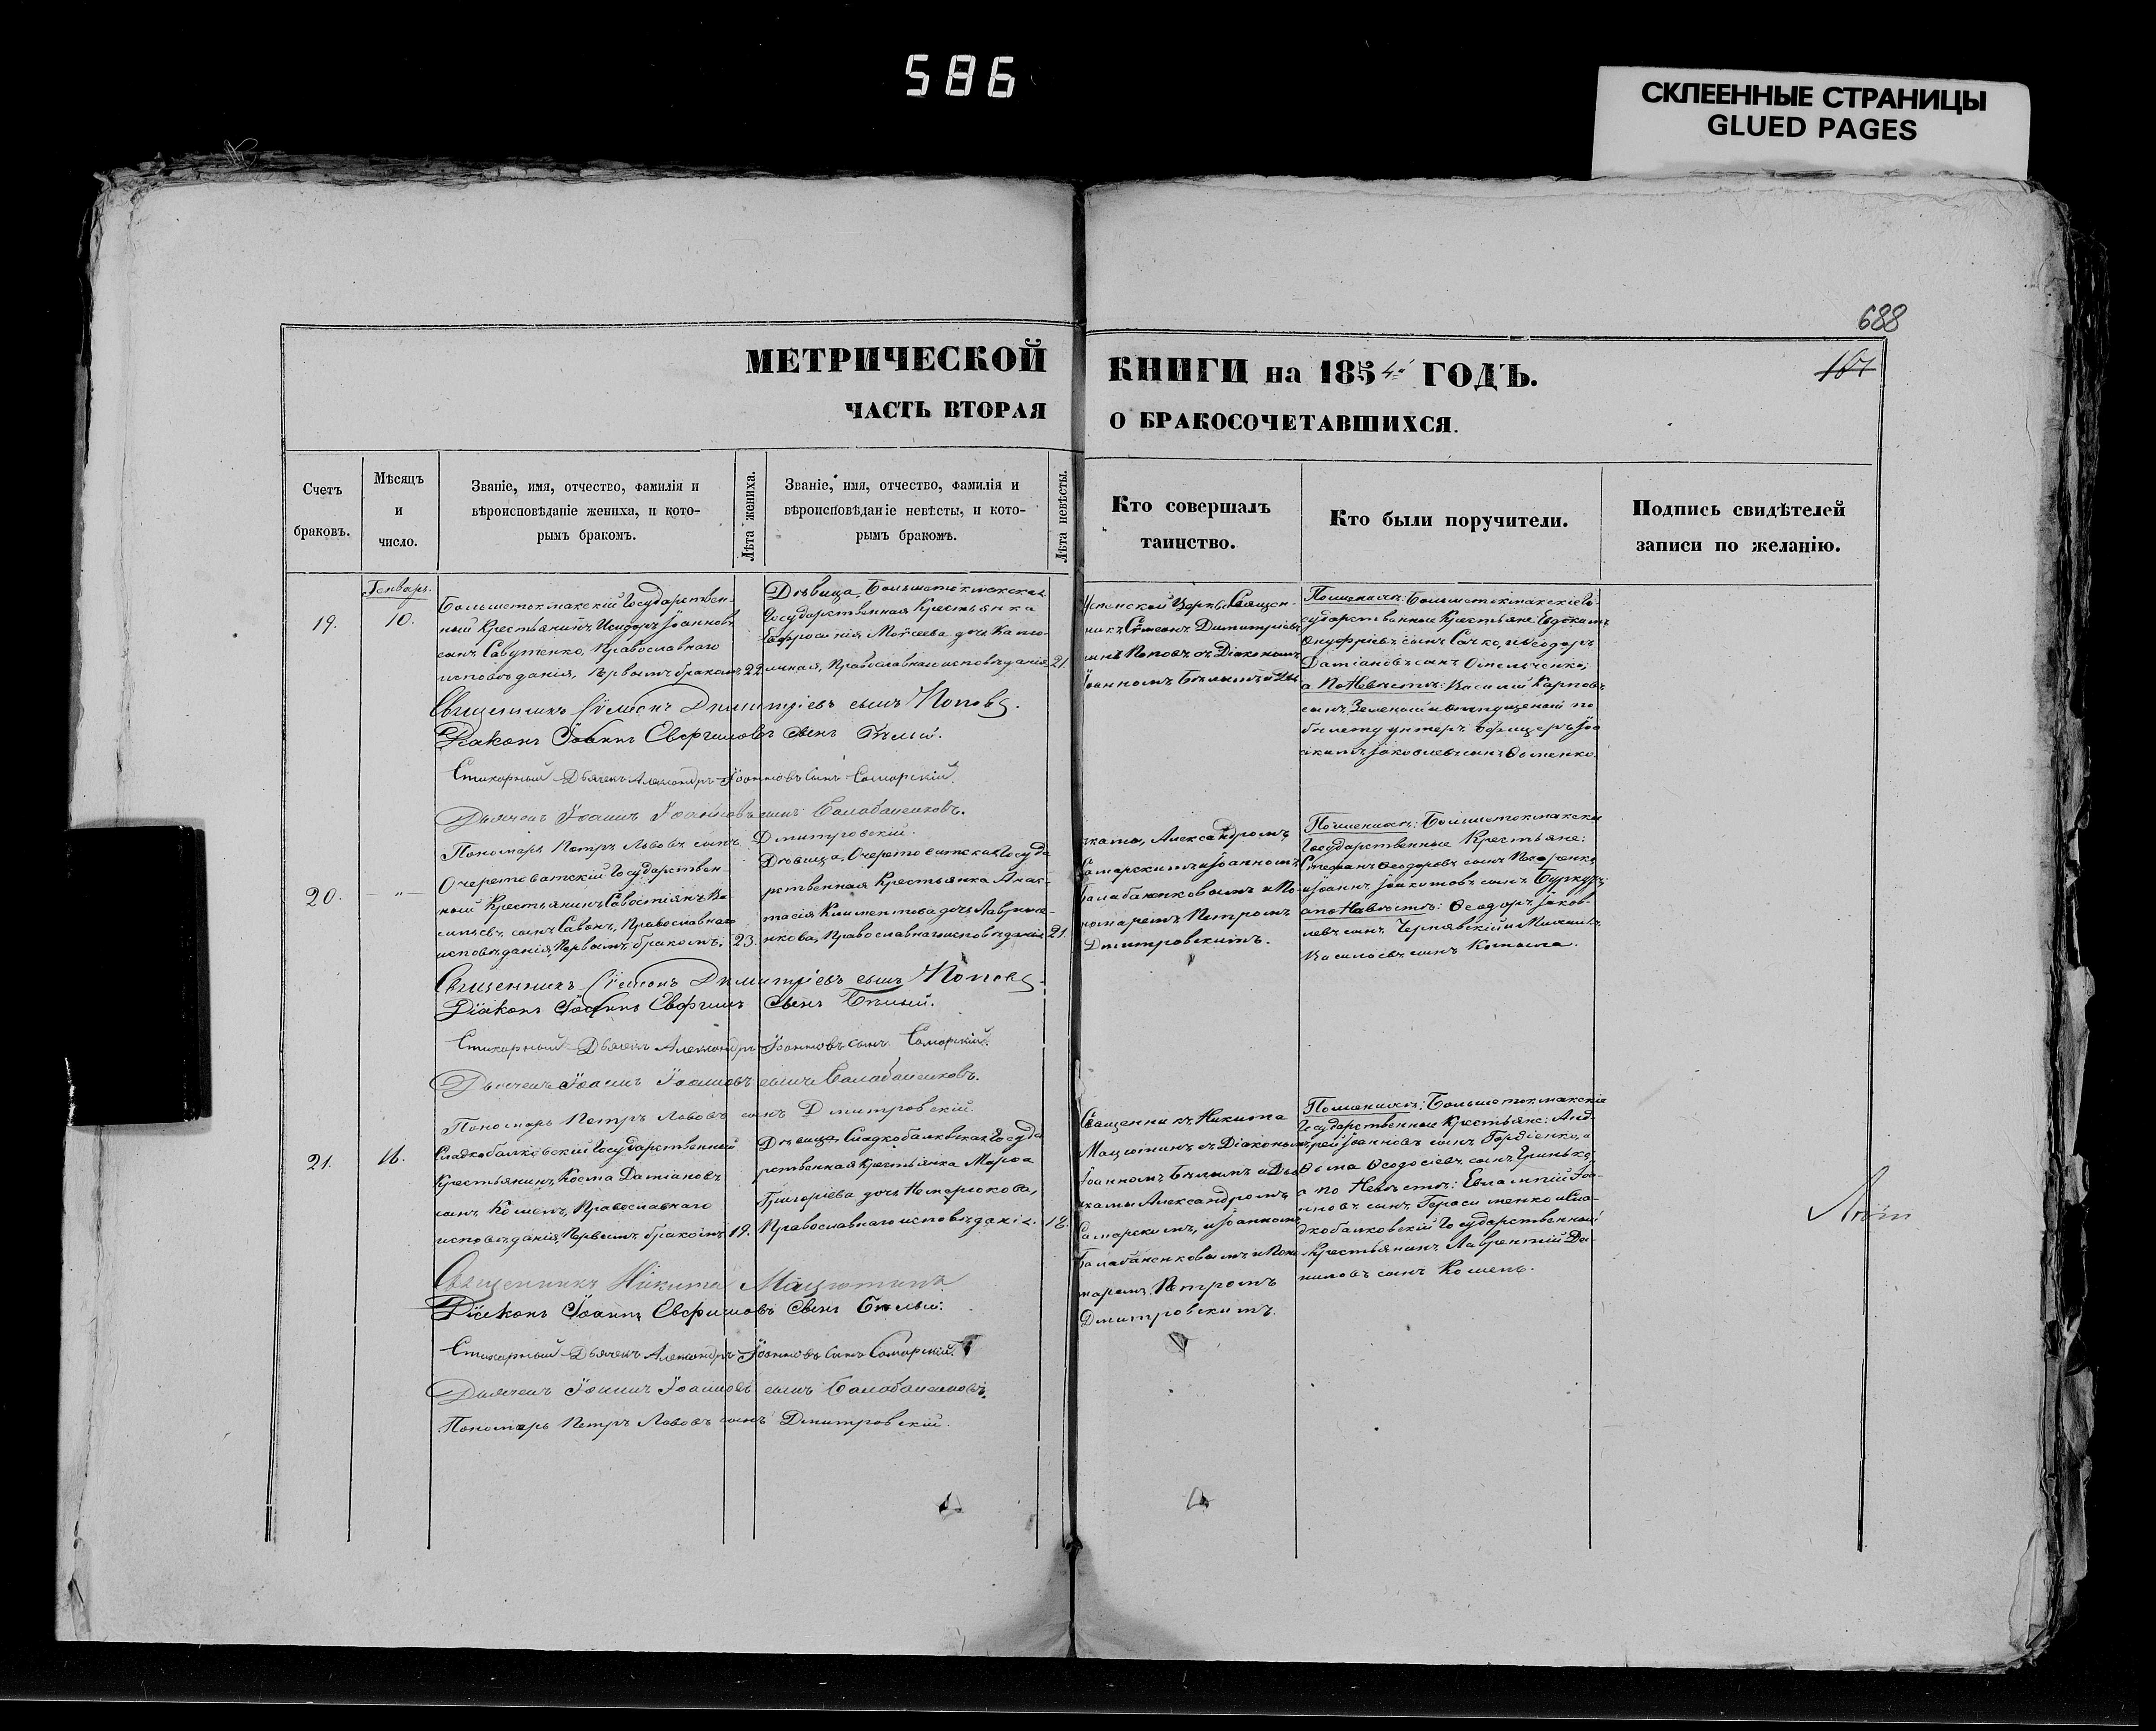 586
СКЛЕЕННЫЕ СТРАНИЦЫ
GLUED PAGES
688
МЕТРИЧЕСКОЙ
ЧАСТЬ ВТОРАЯ
КНИГИ на 1854 ГОДЪ.
О БРАКОСОЧЕТАВШИХСЯ.
Счетъ
браковъ.
Мѣсяцъ
и
число.
Званіе, имя, отчество, фамилія и
вѣроисповѣданіе жениха, и кото-
рымъ бракомъ.
Лѣта жениха.
Званіе, имя, отчество, фамилія и
вѣроисповѣданіе невѣсты, и кото-
рымъ бракомъ.
Лѣта невѣсты.
Кто совершалъ
таинство.
Кто были поручители.
Подпись свидѣтелей
записи по желанію.
19.
Генварь.
10.
Большетокмакскій Государствен-
ный Крестьянинъ Исидоръ Іоанновъ
сынъ Савутенко, Православнаго
исповѣданія, Первымъ бракомъ
22
Дѣвица, Большетокмакская
Государственная Крестьянка
Евфросинія Моѵсеева дочь
Православнаго исповѣданія
21.
Успенской Церкви Священ-
никъ Сѵмеонъ Димитріевъ
сынъ Поповъ съ Діакономъ
Іоанномъ Бѣлымъ и Дья
По женихѣ: Большетокмакскіе Го-
сударственные Крестьяне: Евдокимъ
Онуфріевъ сынъ Сачко, и Ѳеодоръ
Даміановъ сынъ Омельченко;
а По Невѣстѣ: Василій Карповъ
сынъ Зеленый и отпущеный по
билету унтеръ Офицеръ Іоа
кимъ Іаковлевъ сынъ Ѳоменко.
Священникъ Сѵмеонъ Димитріевъ сынъ Поповъ.
Діаконъ Іоаннъ Евфимовъ сынъ Бѣлый.
Стихарный Дьячекъ Александръ Іоанновъ сынъ Самарскій.
Дьячекъ Іоаннъ Іоанновъ сынъ Балабаненковъ.
Пономарь Петръ Львовъ сынъ Дмитровскій.
20.
"
Очеретоватскій Государствен-
ный Крестьянинъ Савостіянъ Ва
сильевъ сынъ Савонъ, Православнаго
исповѣданія, Первымъ бракомъ.
23.
Дѣвица, Очеретоватская Госуда
рственная Крестьянка Анас-
тасія Климентова дочь Лаврине-
нкова, Православнаго исповѣданія
21.
чками, Александромъ
Самарскимъ и Іоанномъ
Балабаненковымъ и По-
номаремъ Петромъ
Дмитровскимъ.
По женихѣ: Большетокмакскіе
Государственные Крестьяне:
Стефанъ Ѳеодоровъ сынъ
и Іоаннъ Іоакимовъ сынъ
а по Невѣстѣ: Ѳеодоръ Іаков-
левъ сынъ Чернявскій и Михаилъ
Васильевъ сынъ
Священникъ Сѵмеонъ Димитріевъ сынъ Поповъ.
Діаконъ Іоаннъ Евфимъ сынъ Бѣлый.
Стихарный Дьячекъ Александръ Іоанновъ сынъ Самарскій.
Дьячекъ Іоаннъ Іоанновъ сынъ Балабаненковъ.
Пономарь Петръ Львовъ сынъ Дмитровскій.
21.
Сладкобалковскій Государственный
Крестьянинъ, Косма Даміановъ
сынъ Кошень, Православнаго
исповѣданія, Первымъ бракомъ
19.
Дѣвица, Сладкобалковская Госуда
рственная Крестьянка Марѳа
Григоріева дочь
Православнаго исповѣданія.
18.
Священникъ Никита
Мацютинъ съ Діакономъ
Іоанномъ Бѣлымъ и Дья
чками Александромъ
Самарскимъ, и Іоанномъ
Балабаненковымъ и Поно
маремъ Петромъ
Дмитровскимъ.
По женихѣ: Большетокмакскіе
Государственные Крестьяне: Анд-
рей Іоанновъ сынъ Гордіенко, и
Ѳома Ѳеодосіевъ сынъ Гринько;
а по Невѣстѣ: Евлампій Іоа-
нновъ сынъ Герасименко и Сла-
дкобалковскій Государственный
Крестьянинъ Лаврентій Да-
ниловъ сынъ Кошень.
Священникъ Никита Мацютинъ
Діаконъ Іоаннъ Евфимовъ сынъ Бѣлый.
Стихарный Дьячекъ Александръ Іоанновъ сынъ Самарскій.
Дьячекъ Іоаннъ Іоанновъ сынъ Балабаненковъ.
Пономарь Петръ Львовъ сынъ Дмитровскій.